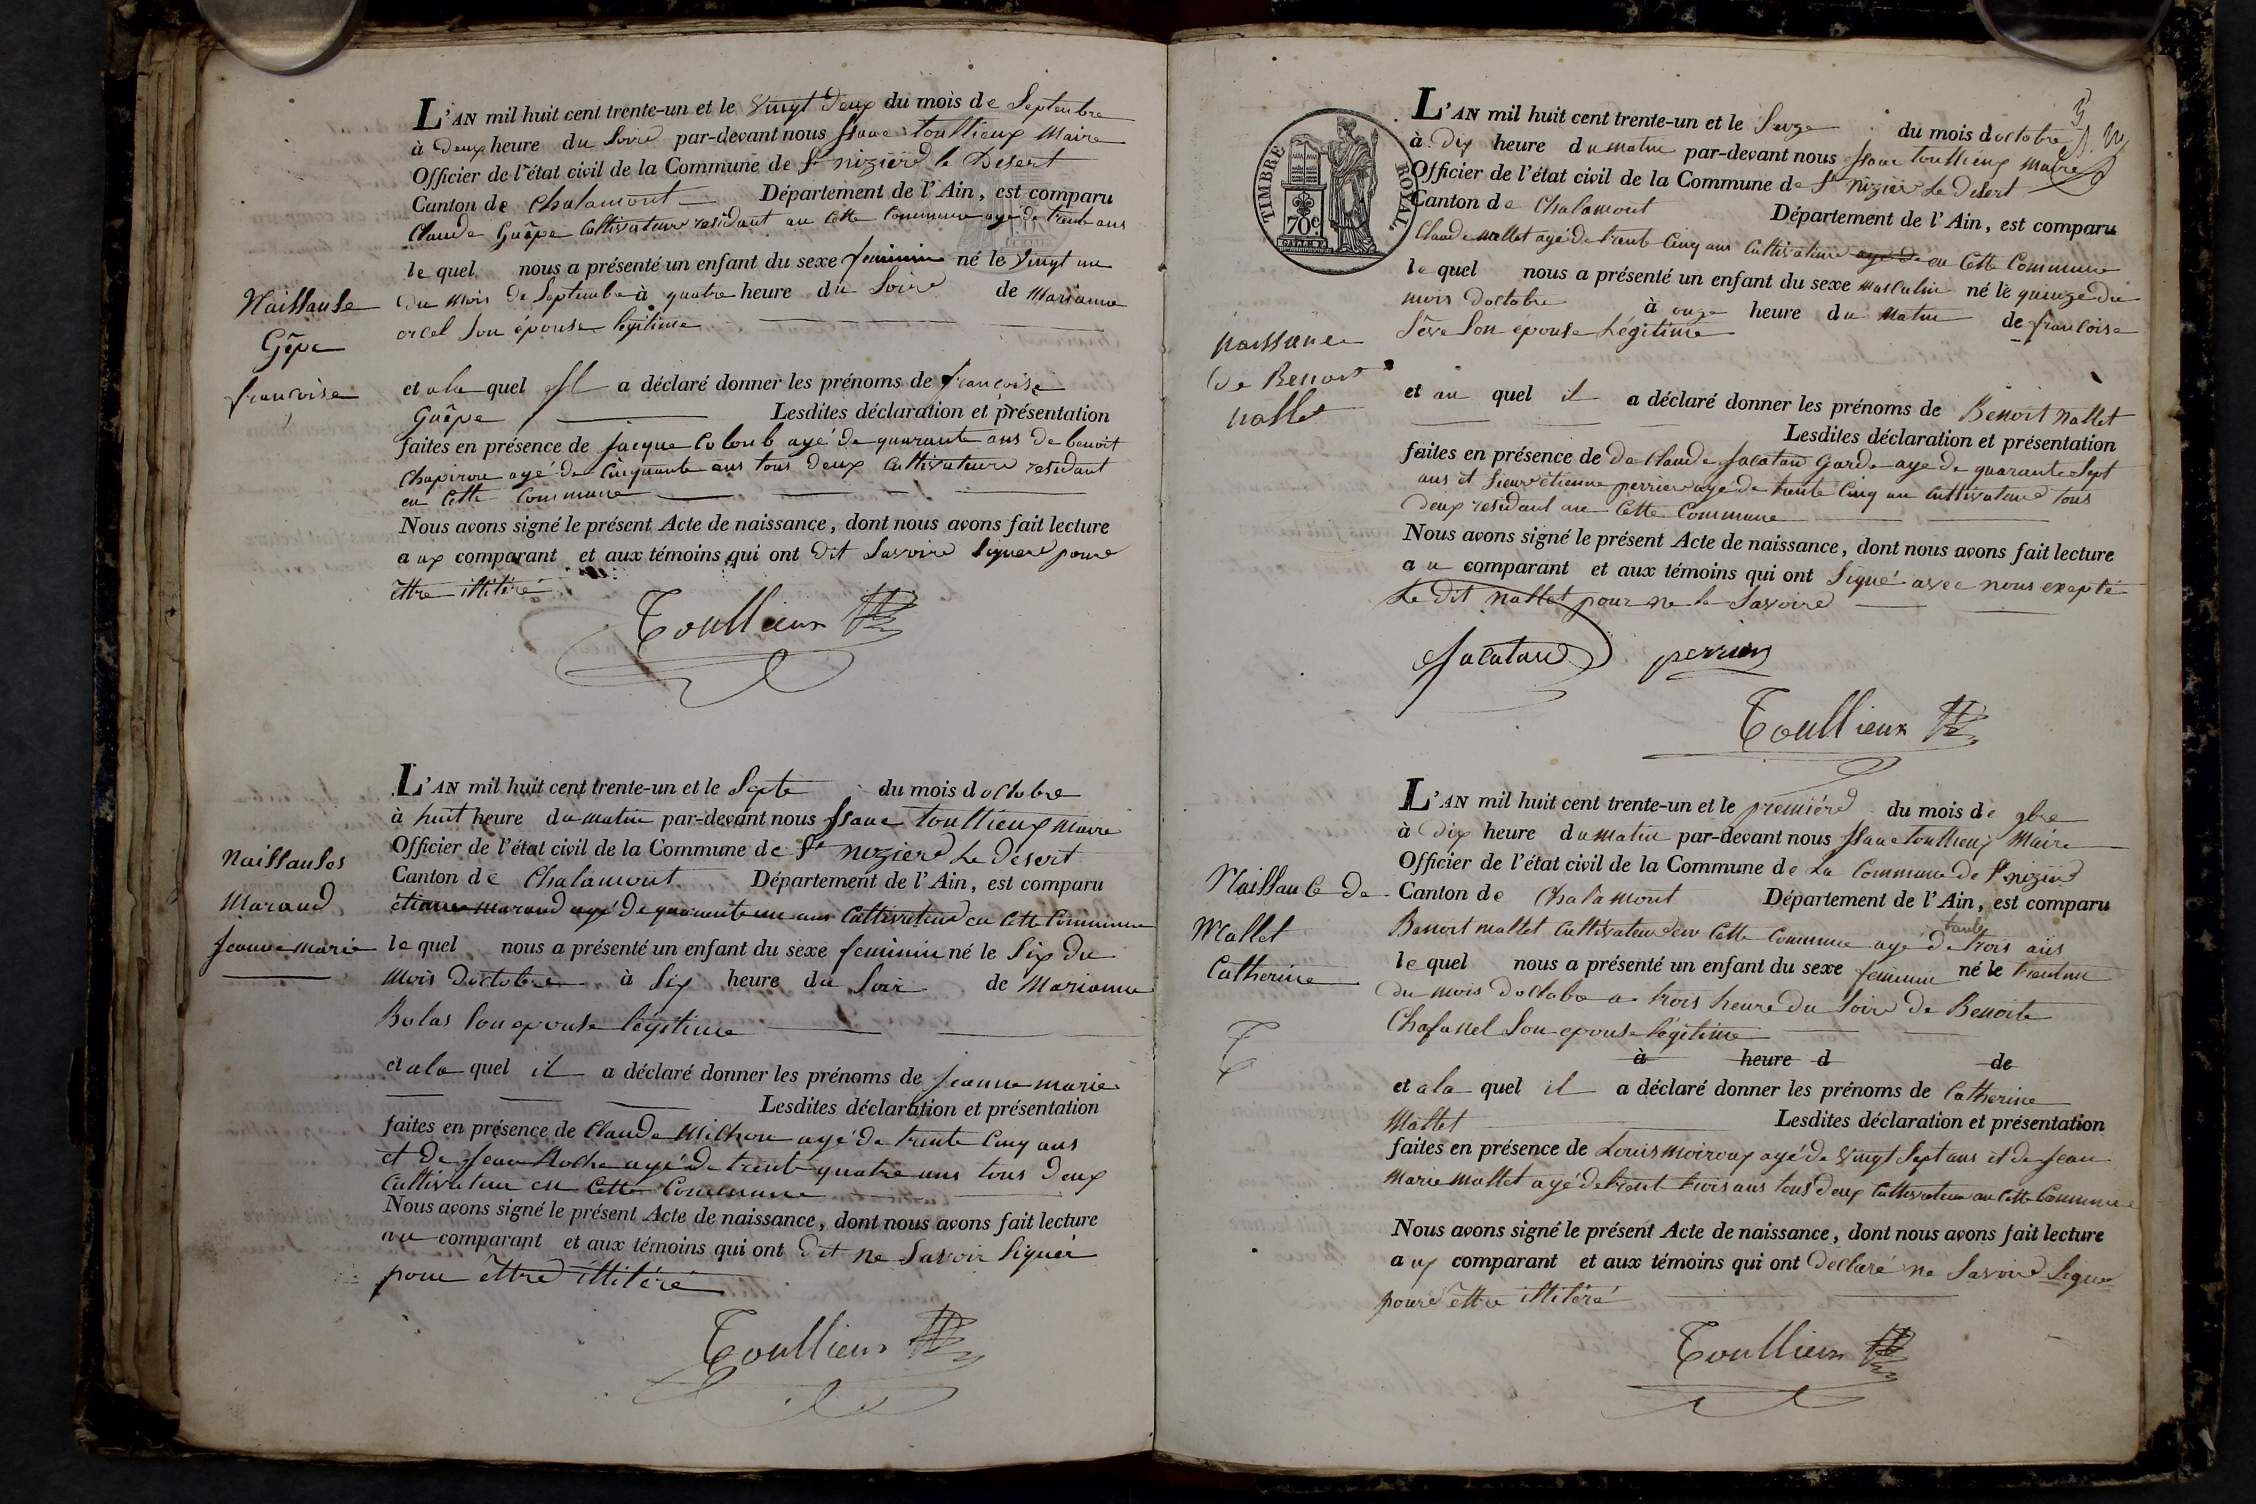 L'AN mil huit cent trente-un et le vingt deux du mois de Septembre
à deux heure du Soire par-devant nous Isaac toullieux Maire
Officier de l'état civil de la Commune de St nizier le Desert
Canton de Chalamont Département de l'Ain, est comparu
Claude Guêpe Cultivateur residant au Cette Commune agé de trente ans
le quel nous a présenté un enfant du sexe feminin né le vingt un
du mois de Septembre à quatre heure du Soire de Marianne
orcel Son épouse légitime
Naissanse
Gêpe
françoise
et a la quel Il a déclaré donner les prénoms de françoise
Guêpe Lesdites déclaration et présentation
faites en présence de Jacque Colomb agé de quarante ans de benoit
Chapiron agé de Cinquante ans tous deux Cultivateurs residant
en Cette Commune
Nous avons signé le présent Acte de naissance, dont nous avons fait lecture
aux comparant et aux témoins qui ont dit Savoire Signere poure
ettre illitéré
Toullieux
L'AN mil huit cent trente-un et le Septe du mois doctobre
à huit heure du matin par-devant nous Isaac toullieux Maire
Officier de l'état civil de la Commune de St nizier Le desert
Canton de Chalamont Département de l'Ain, est comparu
étienne Maraud agé de quarante un ans Cultivateur en Cette Commune
le quel nous a présenté un enfant du sexe feminin né le Six du
mois doctobre à Six heure du Soir de Marianne
Bolas Son epouse legitime
Naissanses
Maraud
Jeanne marie
et a la quel il a déclaré donner les prénoms de Jeanne marie
Lesdites déclaration et présentation
faites en présence de Claude Michon agé de trente Cinq ans
et de Jean Roche agé de trente quatre ans tous deux
Cultivateur en Cette Commune
Nous avons signé le présent Acte de naissance, dont nous avons fait lecture
au comparant et aux témoins qui ont dit ne Savoir Signér
pour ettre illitéré
Toullieux
TIMBRE ROYAL
70c
L'AN mil huit cent trente-un et le Seize du mois doctobre
à dix heure du matin par-devant nous Isaac toullieux Maire
Officier de l'état civil de la Commune de St nizier Le desert
Canton de Chalamont Département de l'Ain, est comparu
Claude mallet agé de trente Cinq ans Cultivateur agé de en Cette Commune
le quel nous a présenté un enfant du sexe masculin né le quinze du
mois doctobre à onze heure du matin de françoise
Sêve Son épouse Légitime
naissance
de Benoit
nallet
et au quel il a déclaré donner les prénoms de Benoit nallet
Lesdites déclaration et présentation
faites en présence de de Claude Jacatard Garde agé de quarante Sept
ans et Sieur étienne perrier agé de trente Cinq an Cultivateur tous
deux residant au Cette Commune
Nous avons signé le présent Acte de naissance, dont nous avons fait lecture
au comparant et aux témoins qui ont Signé avec nous exepté
Le dit nallet pour ne le Savoire
Jacatard perrier
Toullieux
L'AN mil huit cent trente-un et le premiére du mois de 9bre
à dix heure du matin par-devant nous Isaac toullieux Maire
Officier de l'état civil de la Commune de La Commune de St nizier
Canton de Chalamont Département de l'Ain, est comparu
Benoit mallet Cultivateur en Cette Commune agé de trente trois ans
le quel nous a présenté un enfant du sexe feminin né le trantun
du mois doctobre a trois heure du Soire de Benoite
Chafanel Son epouse légitime
à heure d de
Naissance de
Mallet
Catherine
et a la quel il a déclaré donner les prénoms de Catherine
Mallet Lesdites déclaration et présentation
faites en présence de Louis moiroux agé de vingt Sept ans et de Jean
Marie mallet agé de trent trois ans tous deux Cultivateur au Cette Commune
Nous avons signé le présent Acte de naissance, dont nous avons fait lecture
aux comparant et aux témoins qui ont declaré ne Savoire Signe
poure ettre illitéré
Toullieux